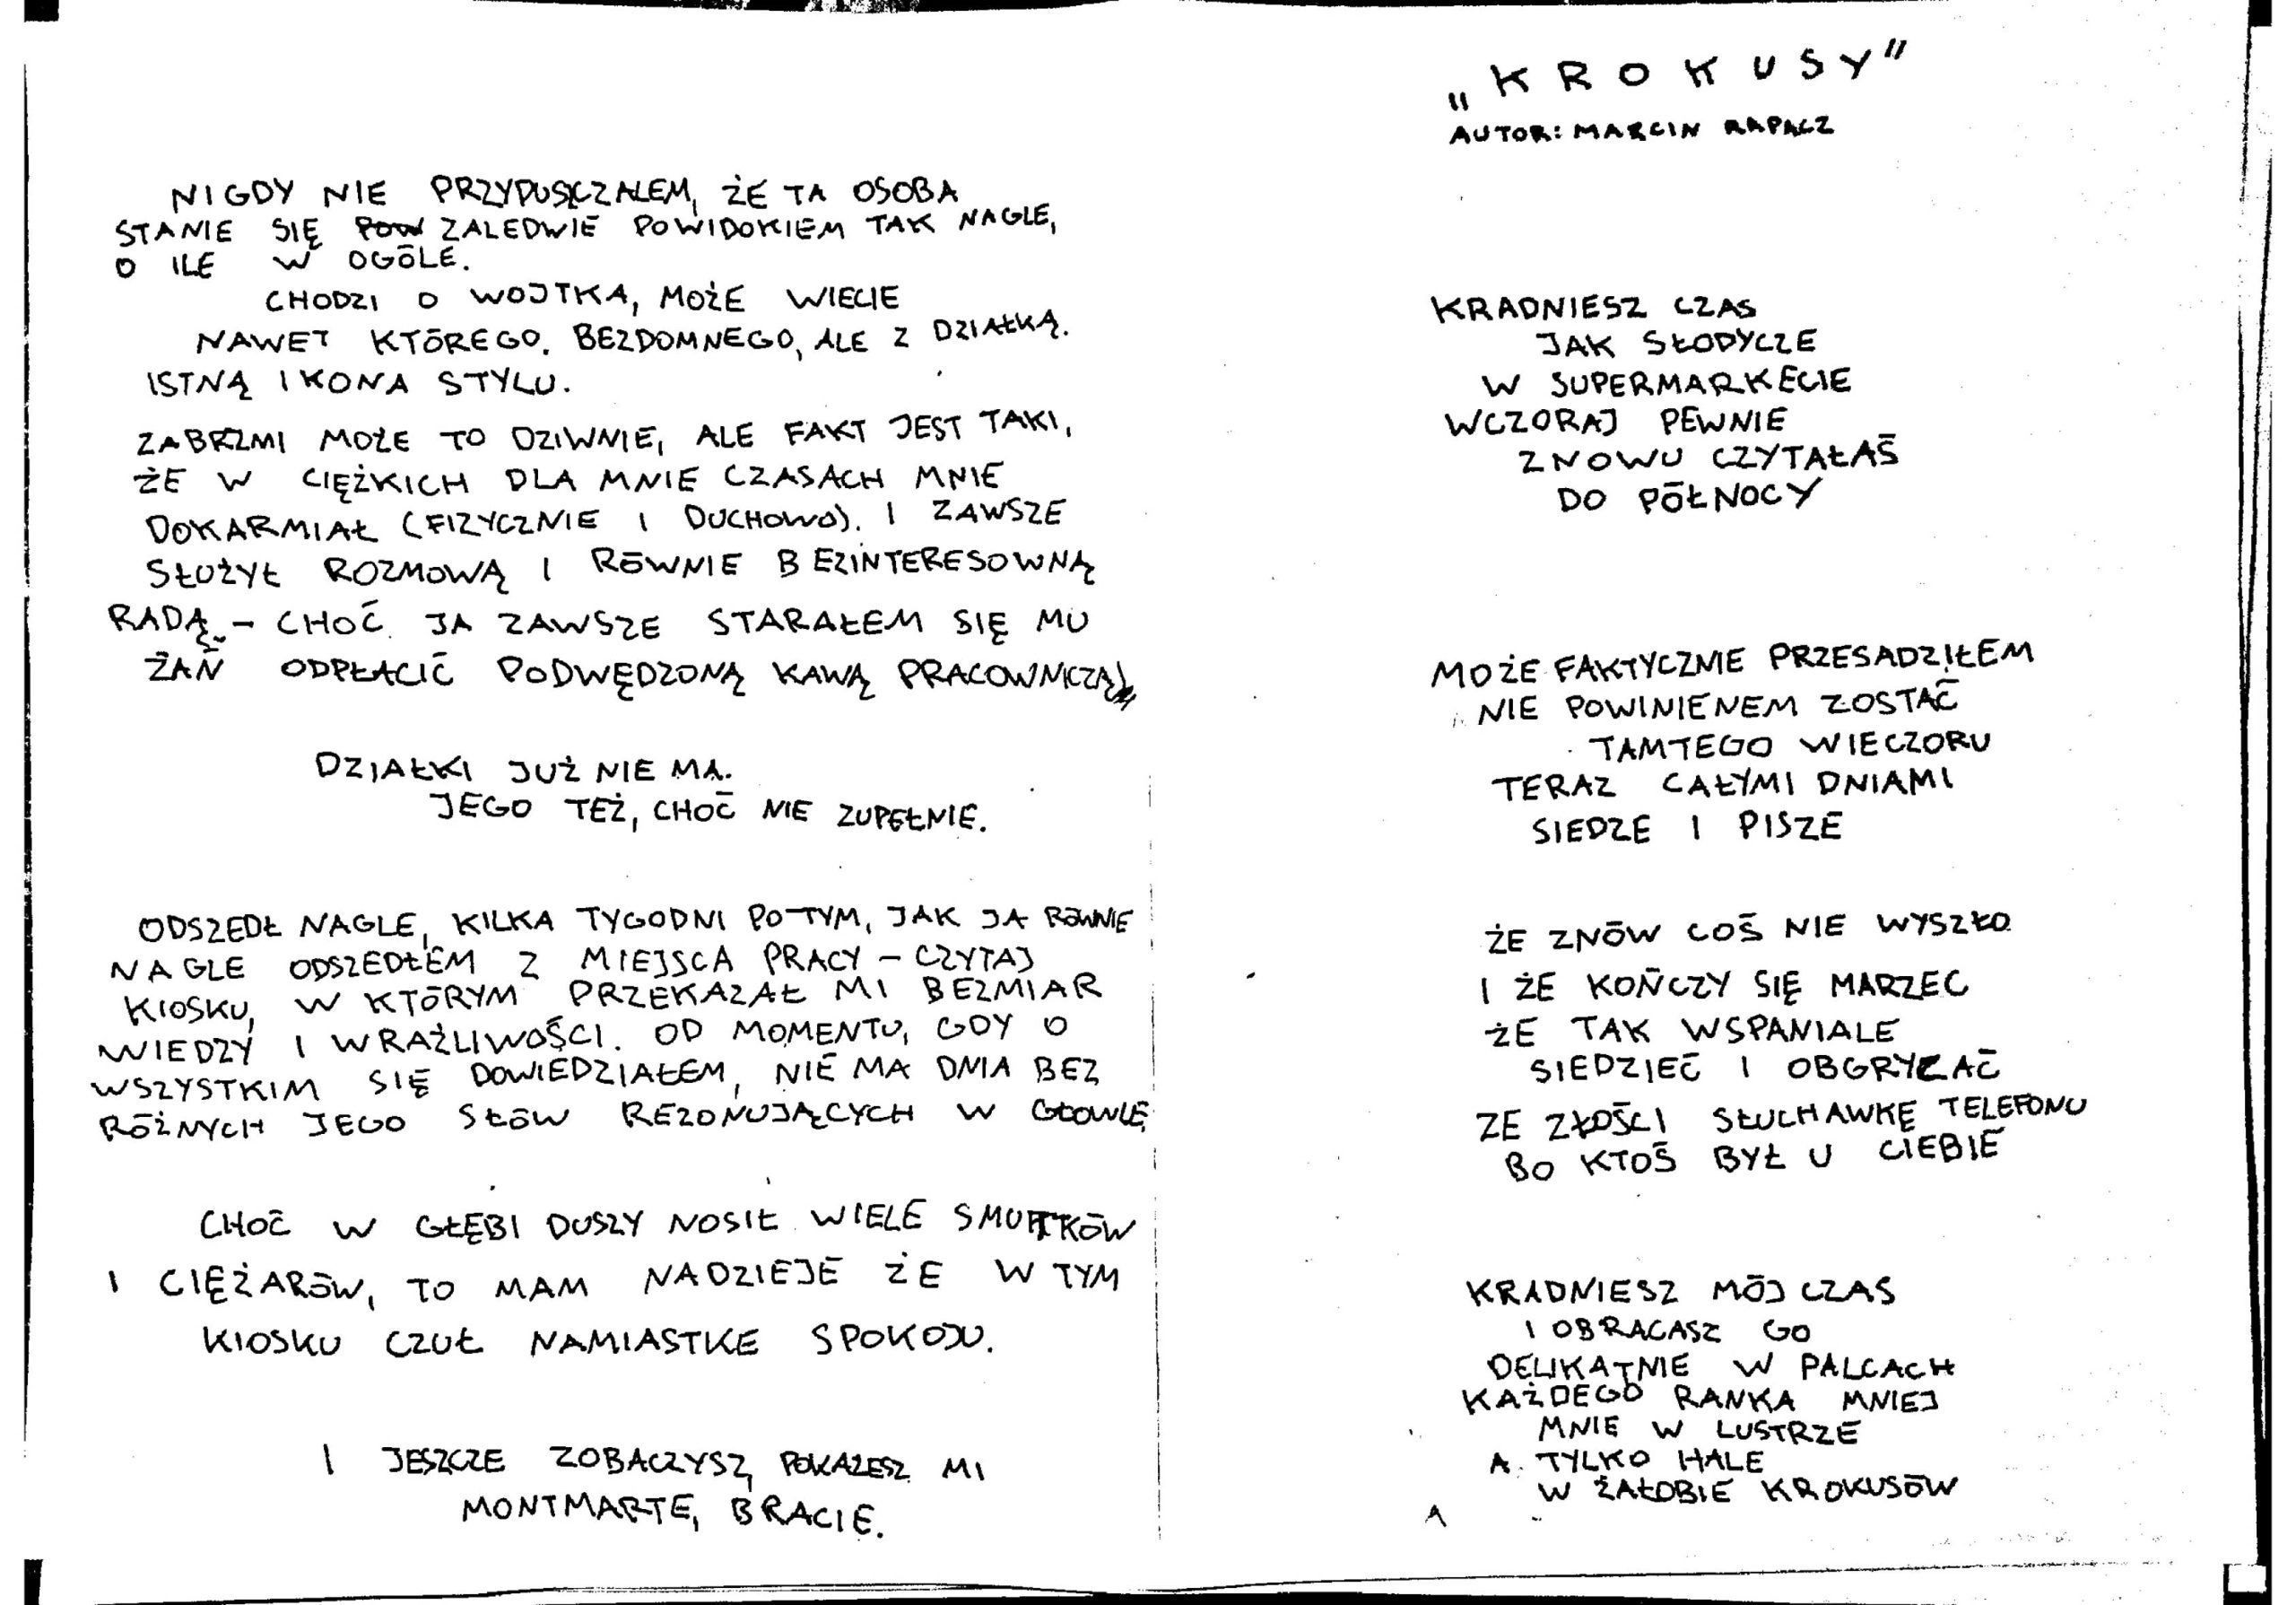 NIGDY NIE PRZYPUSZCZALEM, ŻE TA OSOBA
STANIE SIĘ ZALEDWIE POWIDOKIEM TAK NAGLE,
O ILE W OGÓLE.
CHODZI O WOJTKA, MOŻE WIECIE
NAWET KTÓREGO. BEZDOMNEGO, ALE Z DZIAŁKĄ.
ISTNĄ IKONA STYLU.
ZABRZMI MOŻE TO DZIWNIE, ALE FAKT JEST TAKI,
ŻE W CIĘŻKICH DLA MNIE CZASACH MNIE
DOKARMIAŁ (FIZYCZNIE I DUCHOWO). I ZAWSZE
SŁUŻYŁ ROZMOWĄ I RÓWNIE BEZINTERESOWNĄ
RADĄ - CHOĆ JA ZAWSZE STARAŁEM SIĘ MU
ZAŃ ODPŁACIĆ PODWĘDZONĄ KAWĄ PRACOWNICZĄ)
DZIAŁKI JUŻ NIE MA.
JEGO TEŻ, CHOĆ NIE ZUPEŁNIE.
ODSZEDŁ NAGLE, KILKA TYGODNI PO TYM, JAK JA RÓWNIE
NAGLE ODSZEDŁEM Z MIEJSCA PRACY - CZYTAJ
KIOSKU, W KTÓRYM PRZEKAZAŁ MI BEZMIAR
WIEDZY I WRAŻLIWOŚCI. OD MOMENTU, GDY O
WSZYSTKIM SIĘ DOWIEDZIAŁEM, NIE MA DNIA BEZ
RÓŻNYCH JEGO SŁÓW REZONUJĄCYCH W GŁOWIE.
CHOĆ W GŁĘBI DUSZY NOSIŁ WIELE SMUTKÓW
I CIĘŻARÓW, TO MAM NADZIEJE ŻE W TYM
KIOSKU CZUŁ NAMIASTKE SPOKOJU.
I JESZCZE ZOBACZYSZ, POKAŻESZ MI
MONTMARTE, BRACIE.
„KROKUSY"
AUTOR: MARCIN RAPACZ
KRADNIESZ CZAS
JAK SŁODYCZE
W SUPERMARKECIE
WCZORAJ PEWNIE
ZNOWU CZYTAŁAŚ
DO PÓŁNOCY
MOŻE FAKTYCZNIE PRZESADZIŁEM
NIE POWINIENEM ZOSTAĆ
TAMTEGO WIECZORU
TERAZ CAŁYMI DNIAMI
SIEDZE I PISZE
ŻE ZNÓW COŚ NIE WYSZŁO
I ŻE KOŃCZY SIĘ MARZEC
ŻE TAK WSPANIALE
SIEDZIEĆ I OBGRYZAĆ
ZE ZŁOŚCI SŁUCHAWKĘ TELEFONU
BO KTOŚ BYŁ U CIEBIE
KRADNIESZ MÓJ CZAS
I OBRACASZ GO
DELIKATNIE W PALCACH
KAŻDEGO RANKA MNIEJ
MNIE W LUSTRZE
A TYLKO HALE
W ŻAŁOBIE KROKUSÓW
A